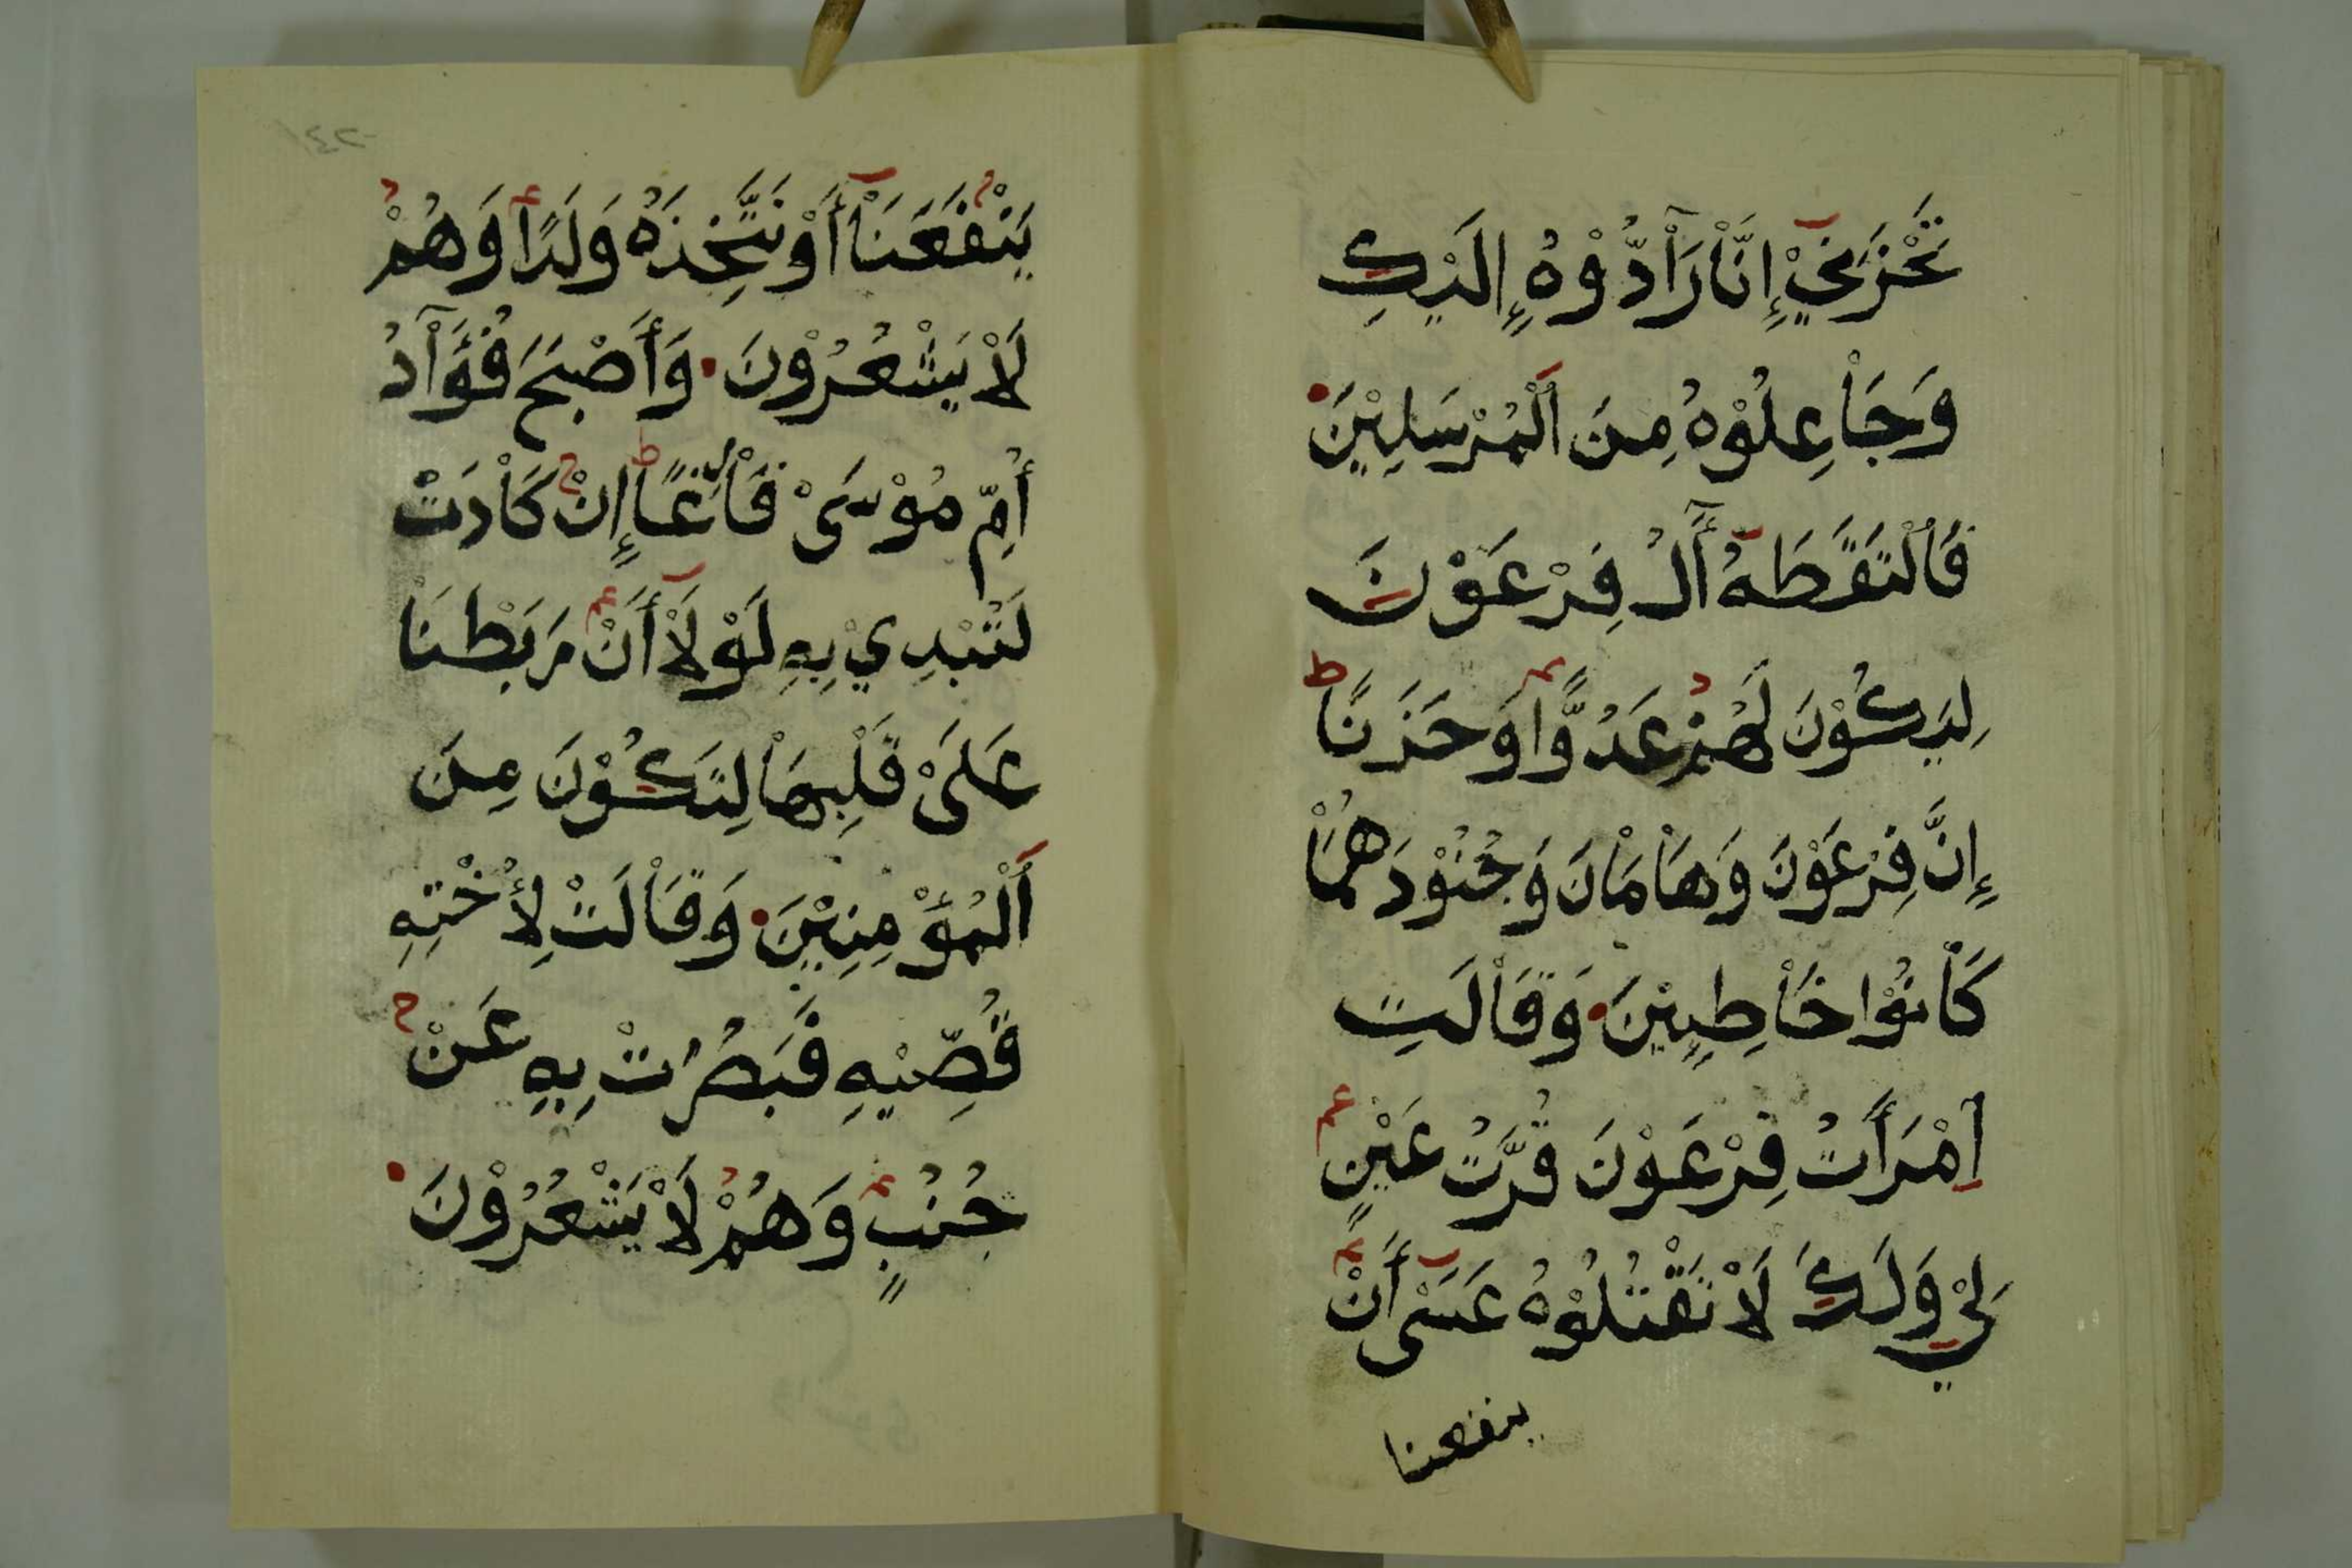 تَحْزَنِيْ إِنَّاْ رَآْدُّوْهُ إِلَيْكِ
وَجَاْعِلُوْهُ مِنَ اَلْمُرْسَلِيْنَ
فَاْلْتَقَطَهُ أَٓلُ فِرْعَوْنَ
لِيَكُوْنَ لَهُمْ عَدُوًّا وَحَزَنًا ط
إِنَّ فِرْعَوْنَ وَهَاْمَاْنَ وَجُنُوْدَهُمَاْ
كَاْنُوْا خَاْطِيِٕيْنَ وَقَاْلَتِ
اِمْرَأَتُ فِرْعَوْنَ قُرَّتُ عَيْنٍ
لِيْ وَلَكَ لَاْ تَقْتُلُوْهُ عَسَىْ أَنْ
ينفعنا
١٤٢
يَنْفَعَنَاْ أَوْ نَتَّخِذَهُ وَلَدًا وَهُمْ
لَاْ يَشْعُرُوْنَ وَأَصْبَحَ فُؤَآْدُ
أُمِّ مُوْسَىْ فَاْرِغًا ط إِنْ كَاْدَتْ
لَتُبْدِيْ بِهِ لَوْلَاْ أَنْ رَبَطْنَاْ
عَلَىْ قَلْبِهَاْ لِتَكُوْنَ مِنَ
اَلْمُؤْمِنِيْنَ وَقَاْلَتْ لِأُخْتِهِ
قُصِّيْهِ فَبَصُرَتْ بِهِ عَنْ
جُنُبٍ وَهُمْ لَاْ يَشْعُرُوْنَ